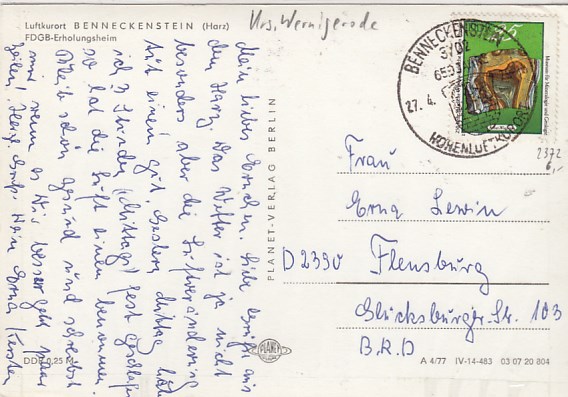 Luftkurort BENNECKENSTEIN (Harz)
FDGB-Erholungsheim
Krs. Wernigerode
Mein liebes Ernchen. Liebe Grüße aus
dem Harz. Das Wetter ist ja nicht
besonders aber die Luftveränderung
tut einem gut. Gestern Mittag hätte
ich 3 Stunden (Mittags) fest geschlafen
so hat die Luft einen benommen.
Bleib schön gesund und schreibst
mir wenn es Dir besser geht paar
Zeilen! Herzl. Grüße Dein Erna
DDR 0,25 M
PLANET-VERLAG BERLIN
PLANET
BENNECKENSTEIN
3702
27. 4.
HÖHENLUFTKURORT
2372
6,-
Frau
Erna Lewin
D 2390 Flensburg
Glücksburger-Str. 103
B.R.D
A 4/77 IV-14-483 03 07 20 804